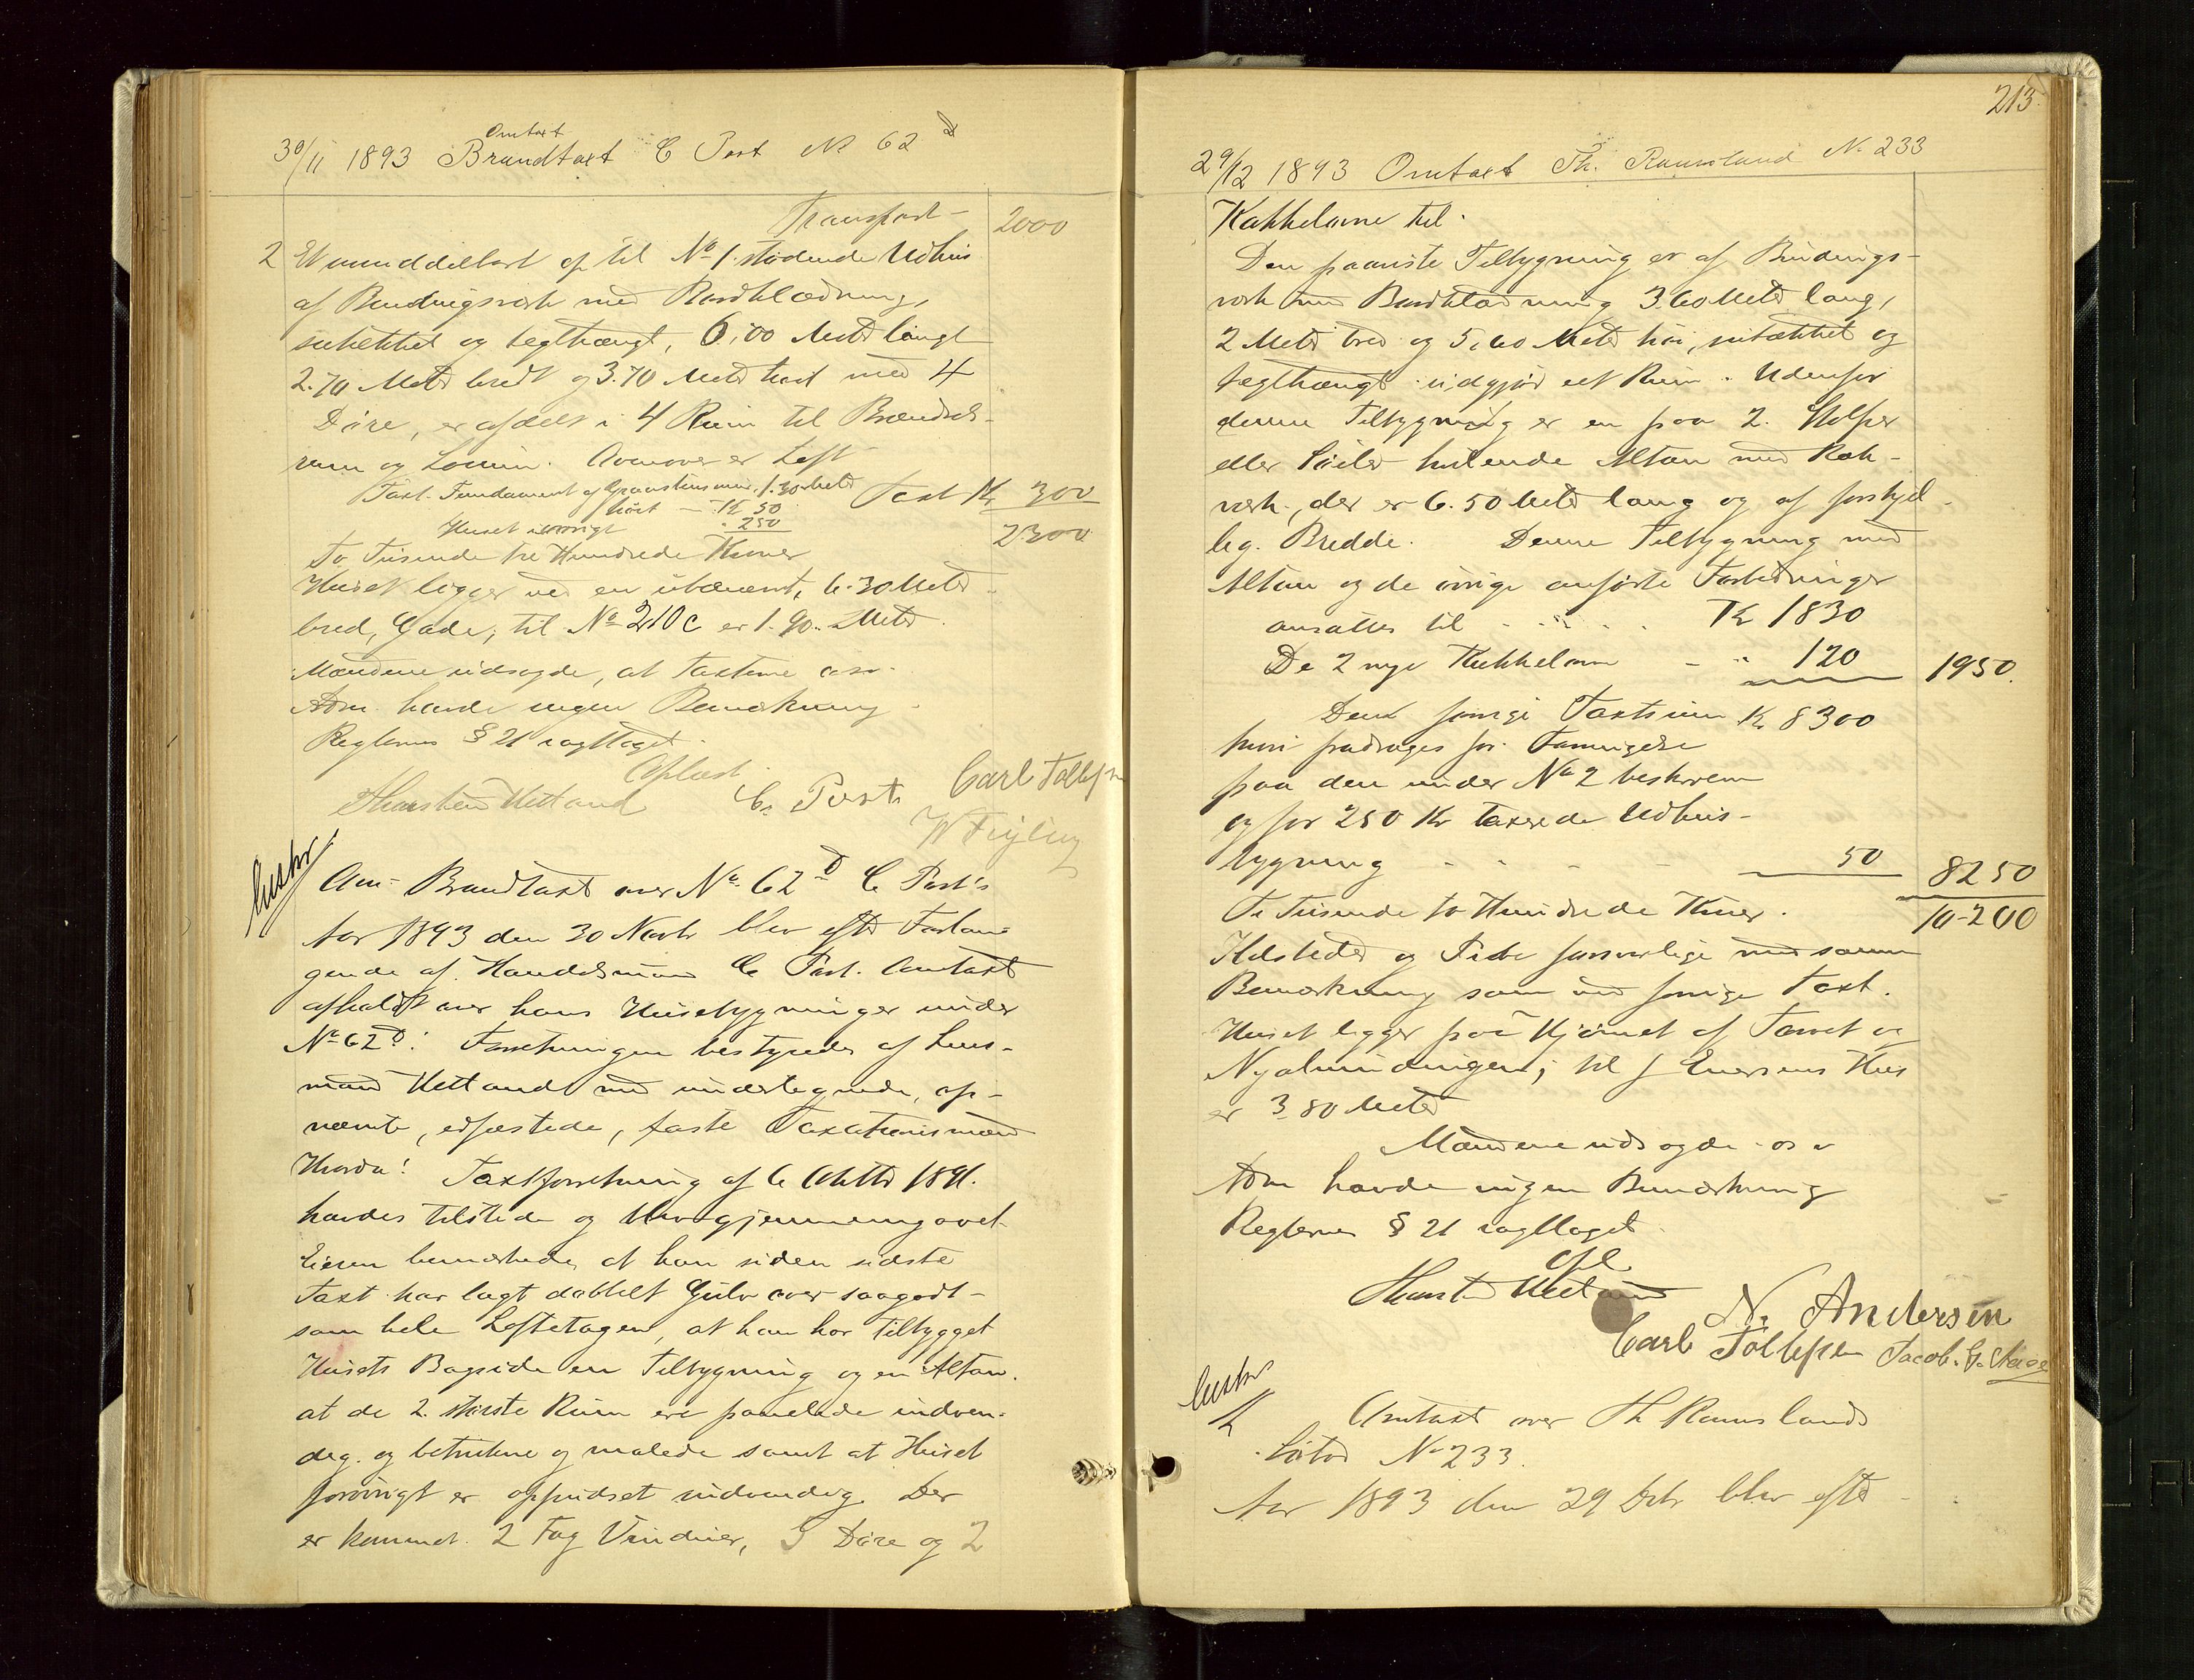 30/11 1893 Brandtaxt C Post No 62 D
Omtaxt
Transport - 2000
2 Et umiddelbart op til No 1. stødende Udhus
af Bindingsværk med Bordklædning,
sutækket og tegthængt, 6,00 Meter langt
2.70 Meter bredt og 3.70 Meter høit med 4
Døre, er afdelt i 4 Rum til Brændsels-
rum og Lokum. Ovenover er Loft
Taxt. Fundament af Graastensmur, 1.30 Meter
høit - Kr 50 Taxt Kr 300
Huset iøvrigt " 250
2300
To Tusende tre Hundrede Kroner
Huset ligger ved en ubenævnt, 6.30 Meter
bred, Gade; til No 210c er 1.90. Meter.
Mændene udsagde, at taxterne osv.
Adm. havde ingen Bemærkning.
Reglernes § 21 iagttaget.
Oplæst.
Thorsten Hetland C. Post Carl Tollefsen
W Feyling
Om- Brandtaxt over No. 62 D C Post's
Aar 1893 den 30 Novbr blev efter Forlan-
gende af Handelsmand C Post. Omtaxt
afholdt over hans Husebygninger under
No 62 D: Forretningen bestyredes af Lens-
mand Hetland med undertegnede, op-
nævnte, edfæstede, faste Taxationsmænd
Hvorda: Taxtforretning af 6 Oktbr 1891.
havdes tilstede og blev gjennemgaaet.
Eieren bemærkede, at han siden sidste
Taxt har lagt dobbelt Gulv over saagodt-
som hele Loftetagen, at han har tilbygget
Husets Bagside en Tilbygning og en Altan.
at de 2. største Rum ere panelede indven-
dig. og betrukne og malede samt at Huset
forøvrigt er oppudset indvendig. Der
er kommet. 2 Fag Vinduer, 3 Døre og 2
213.
29/12 1893 Omtaxt Th. Ramsland No 233
Kakkelovne til.
Den paaviste Tilbygning er af Bindings-
værk med Bordklædning 3.60 Meter lang,
2 Meter bred og 5,60 Meter høi, sutækket og
tegthængt udgjør eet Rum. Udenfor
denne Tilbygning er en paa 2. Stolper
eller Søiler hvilende Altan med Ræk-
værk, der er 6.50 Meter lang og af forskjel-
lig. Bredde. Denne Tilbygning med
Altan og de øvrige anførte Forbedringer
ansættes til - - - - Kr 1830
De 2 nye Kakkelovne - " 120 1950.
Den forrige Taxtsum Kr 8300
hvori fradrages for Forringelse
paa den under No 2 beskrevne
og for 250 Kr taxerede Udhus-
bygning - - - - 50 8250
Ti Tusende to Hundrede Kroner. 10-200
Ildsteder og Piber forsvarlige med samme
Bemærkning som ved forrige Taxt.
Huset ligger paa Hjørnet af Torvet og
Nyalmindingen; til J Enersens Hus
er 3.80 Meter
Mændene udsagde osv
Adm havde ingen Bemærkning
Reglernes § 21 iagttaget.
Opl.
Thorsten Hetland
N. Andersen
Carl Tollefsen Jacob. G.
Omtaxt over Th Ramslands
No 233.
Aar 1893 den 29 Debr blev efter